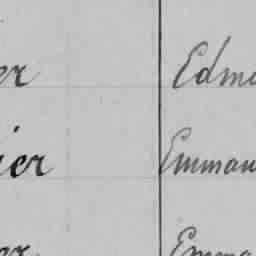 er Edm
ier Emman
er Emma